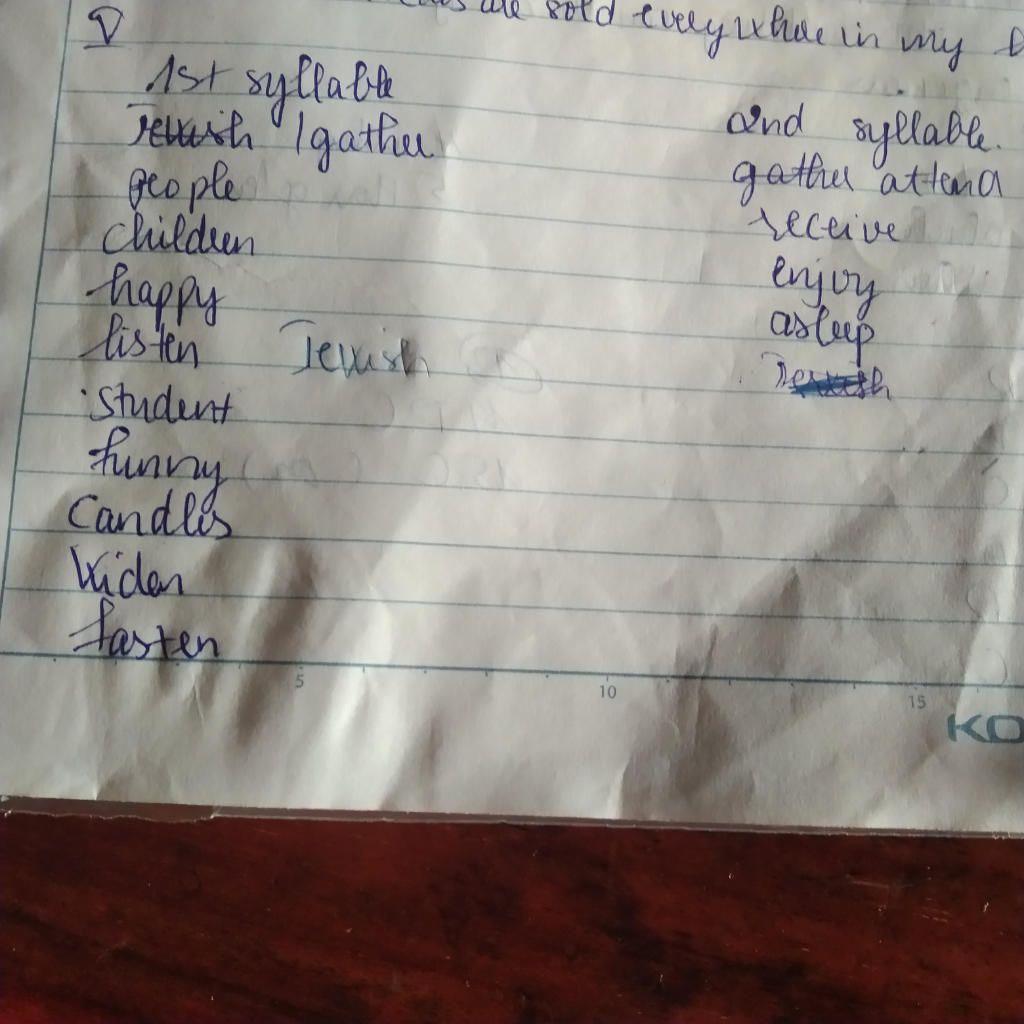 are sold everywhere in my
V
1st syllable
Jewish / gather
people
children
happy
listen Jewish
student
funny
Candles
Widen
fasten
2nd syllable.
gather attend
receive
enjoy
asleep
Jewish
5 10 15
KO